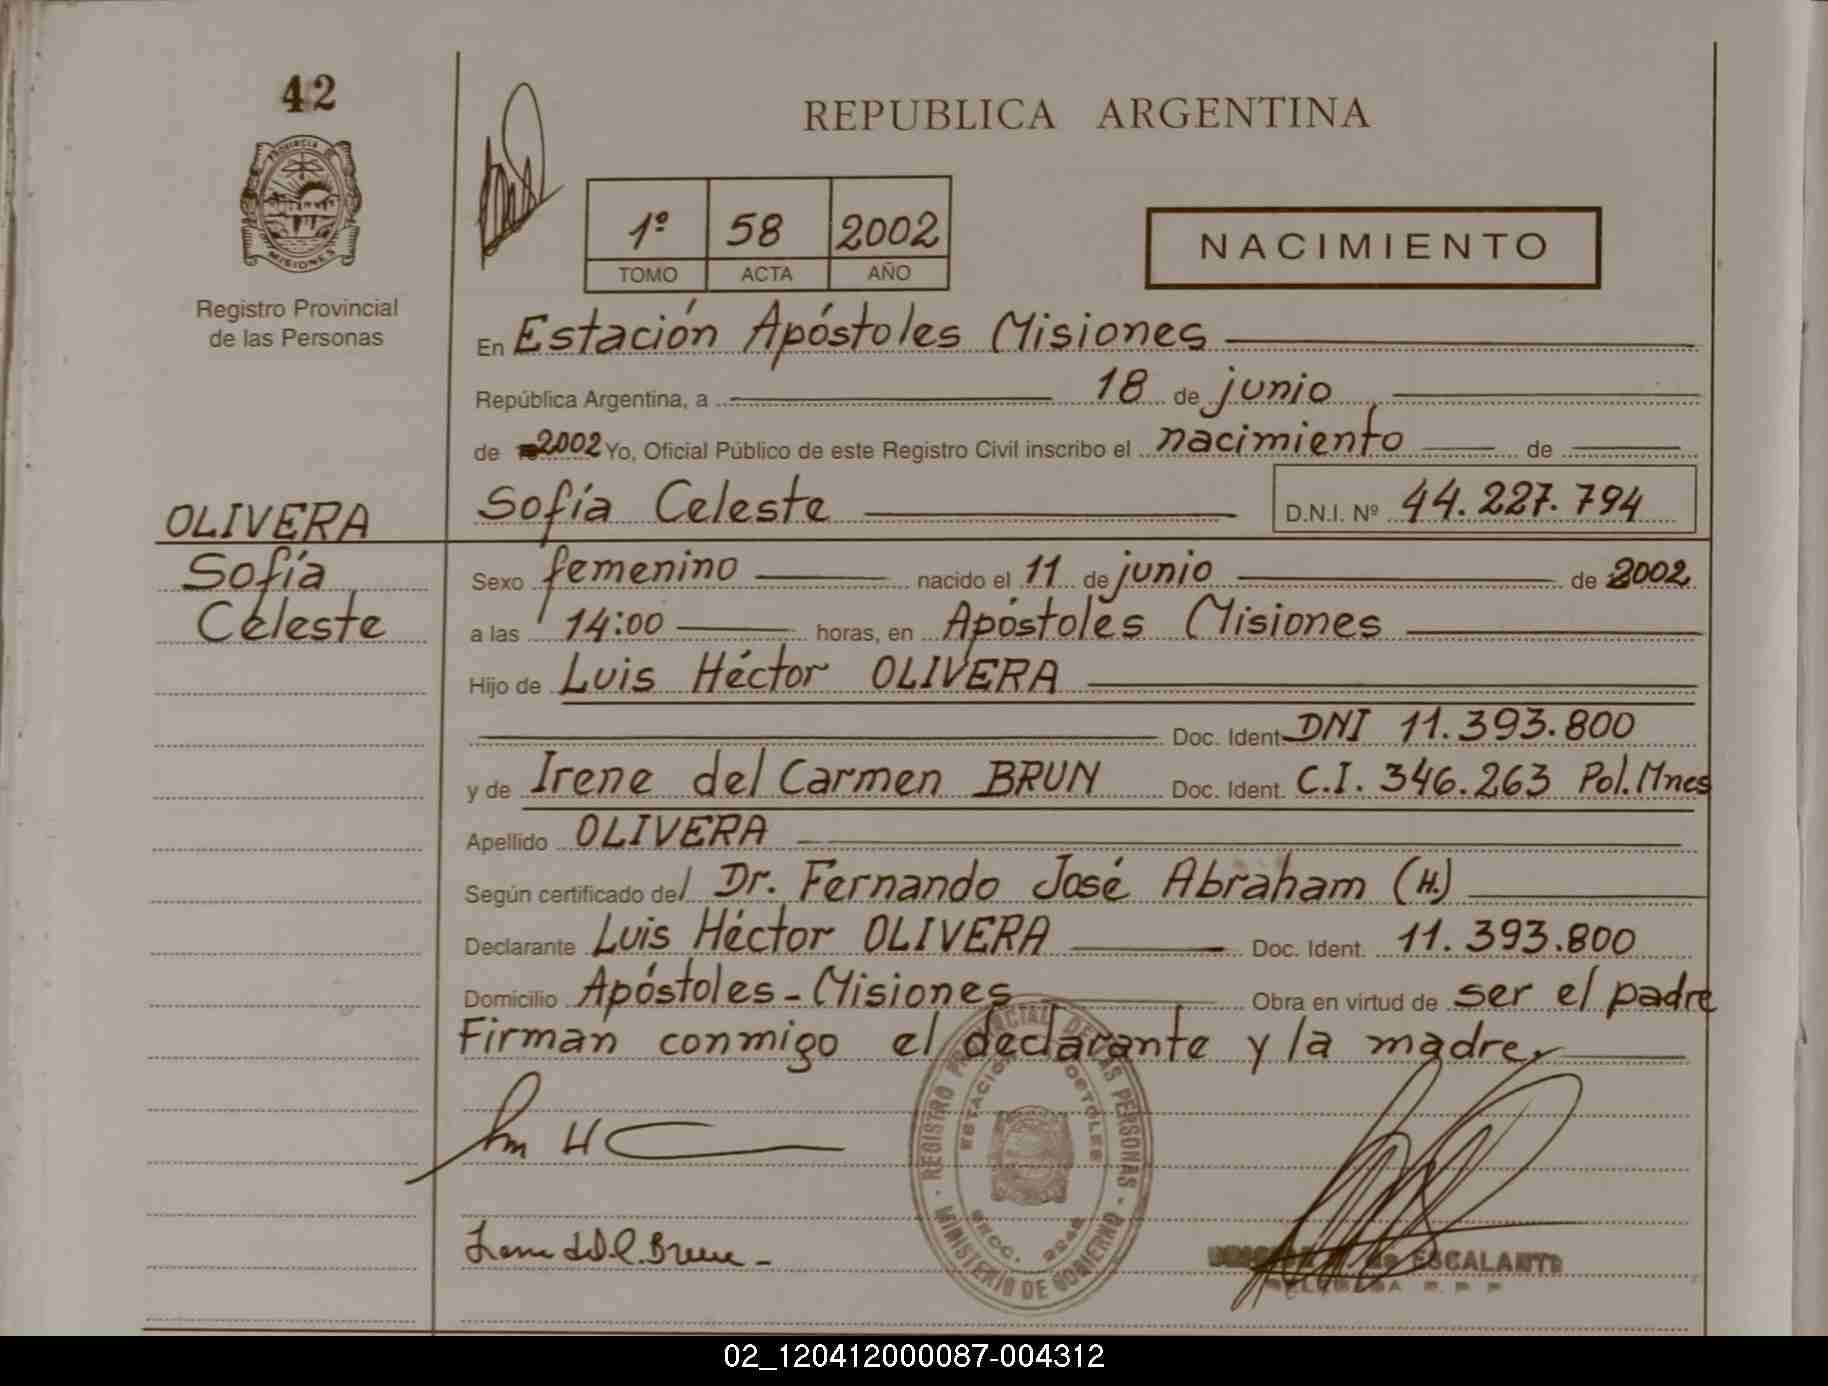 42
PROVINCIA DE
MISIONES
Registro Provincial
de las Personas
REPUBLICA ARGENTINA
1º 58 2002
TOMO ACTA AÑO
NACIMIENTO
En Estación Apóstoles Misiones
República Argentina, a 18 de junio
de 2002 Yo, Oficial Público de este Registro Civil inscribo el nacimiento de
Sofía Celeste D.N.I. Nº 44.227.794
OLIVERA
Sofía
Celeste
Sexo femenino nacido el 11 de junio de 2002
a las 14:00 horas, en Apóstoles Misiones
Hijo de Luis Héctor OLIVERA
Doc. Ident. DNI 11.393.800
y de Irene del Carmen BRUN Doc. Ident. C.I. 346.263 Pol. Mnes
Apellido OLIVERA
Según certificado del Dr. Fernando José Abraham (H.)
Declarante Luis Héctor OLIVERA Doc. Ident. 11.393.800
Domicilio Apóstoles - Misiones Obra en virtud de ser el padre
Firman conmigo el declarante y la madre.
REGISTRO PROVINCIAL DE LAS PERSONAS - MINISTERIO DE GOBIERNO -
ESTACIÓN APOSTOLES
SECC.
Brun -
de ESCALANTE
02_120412000087-004312